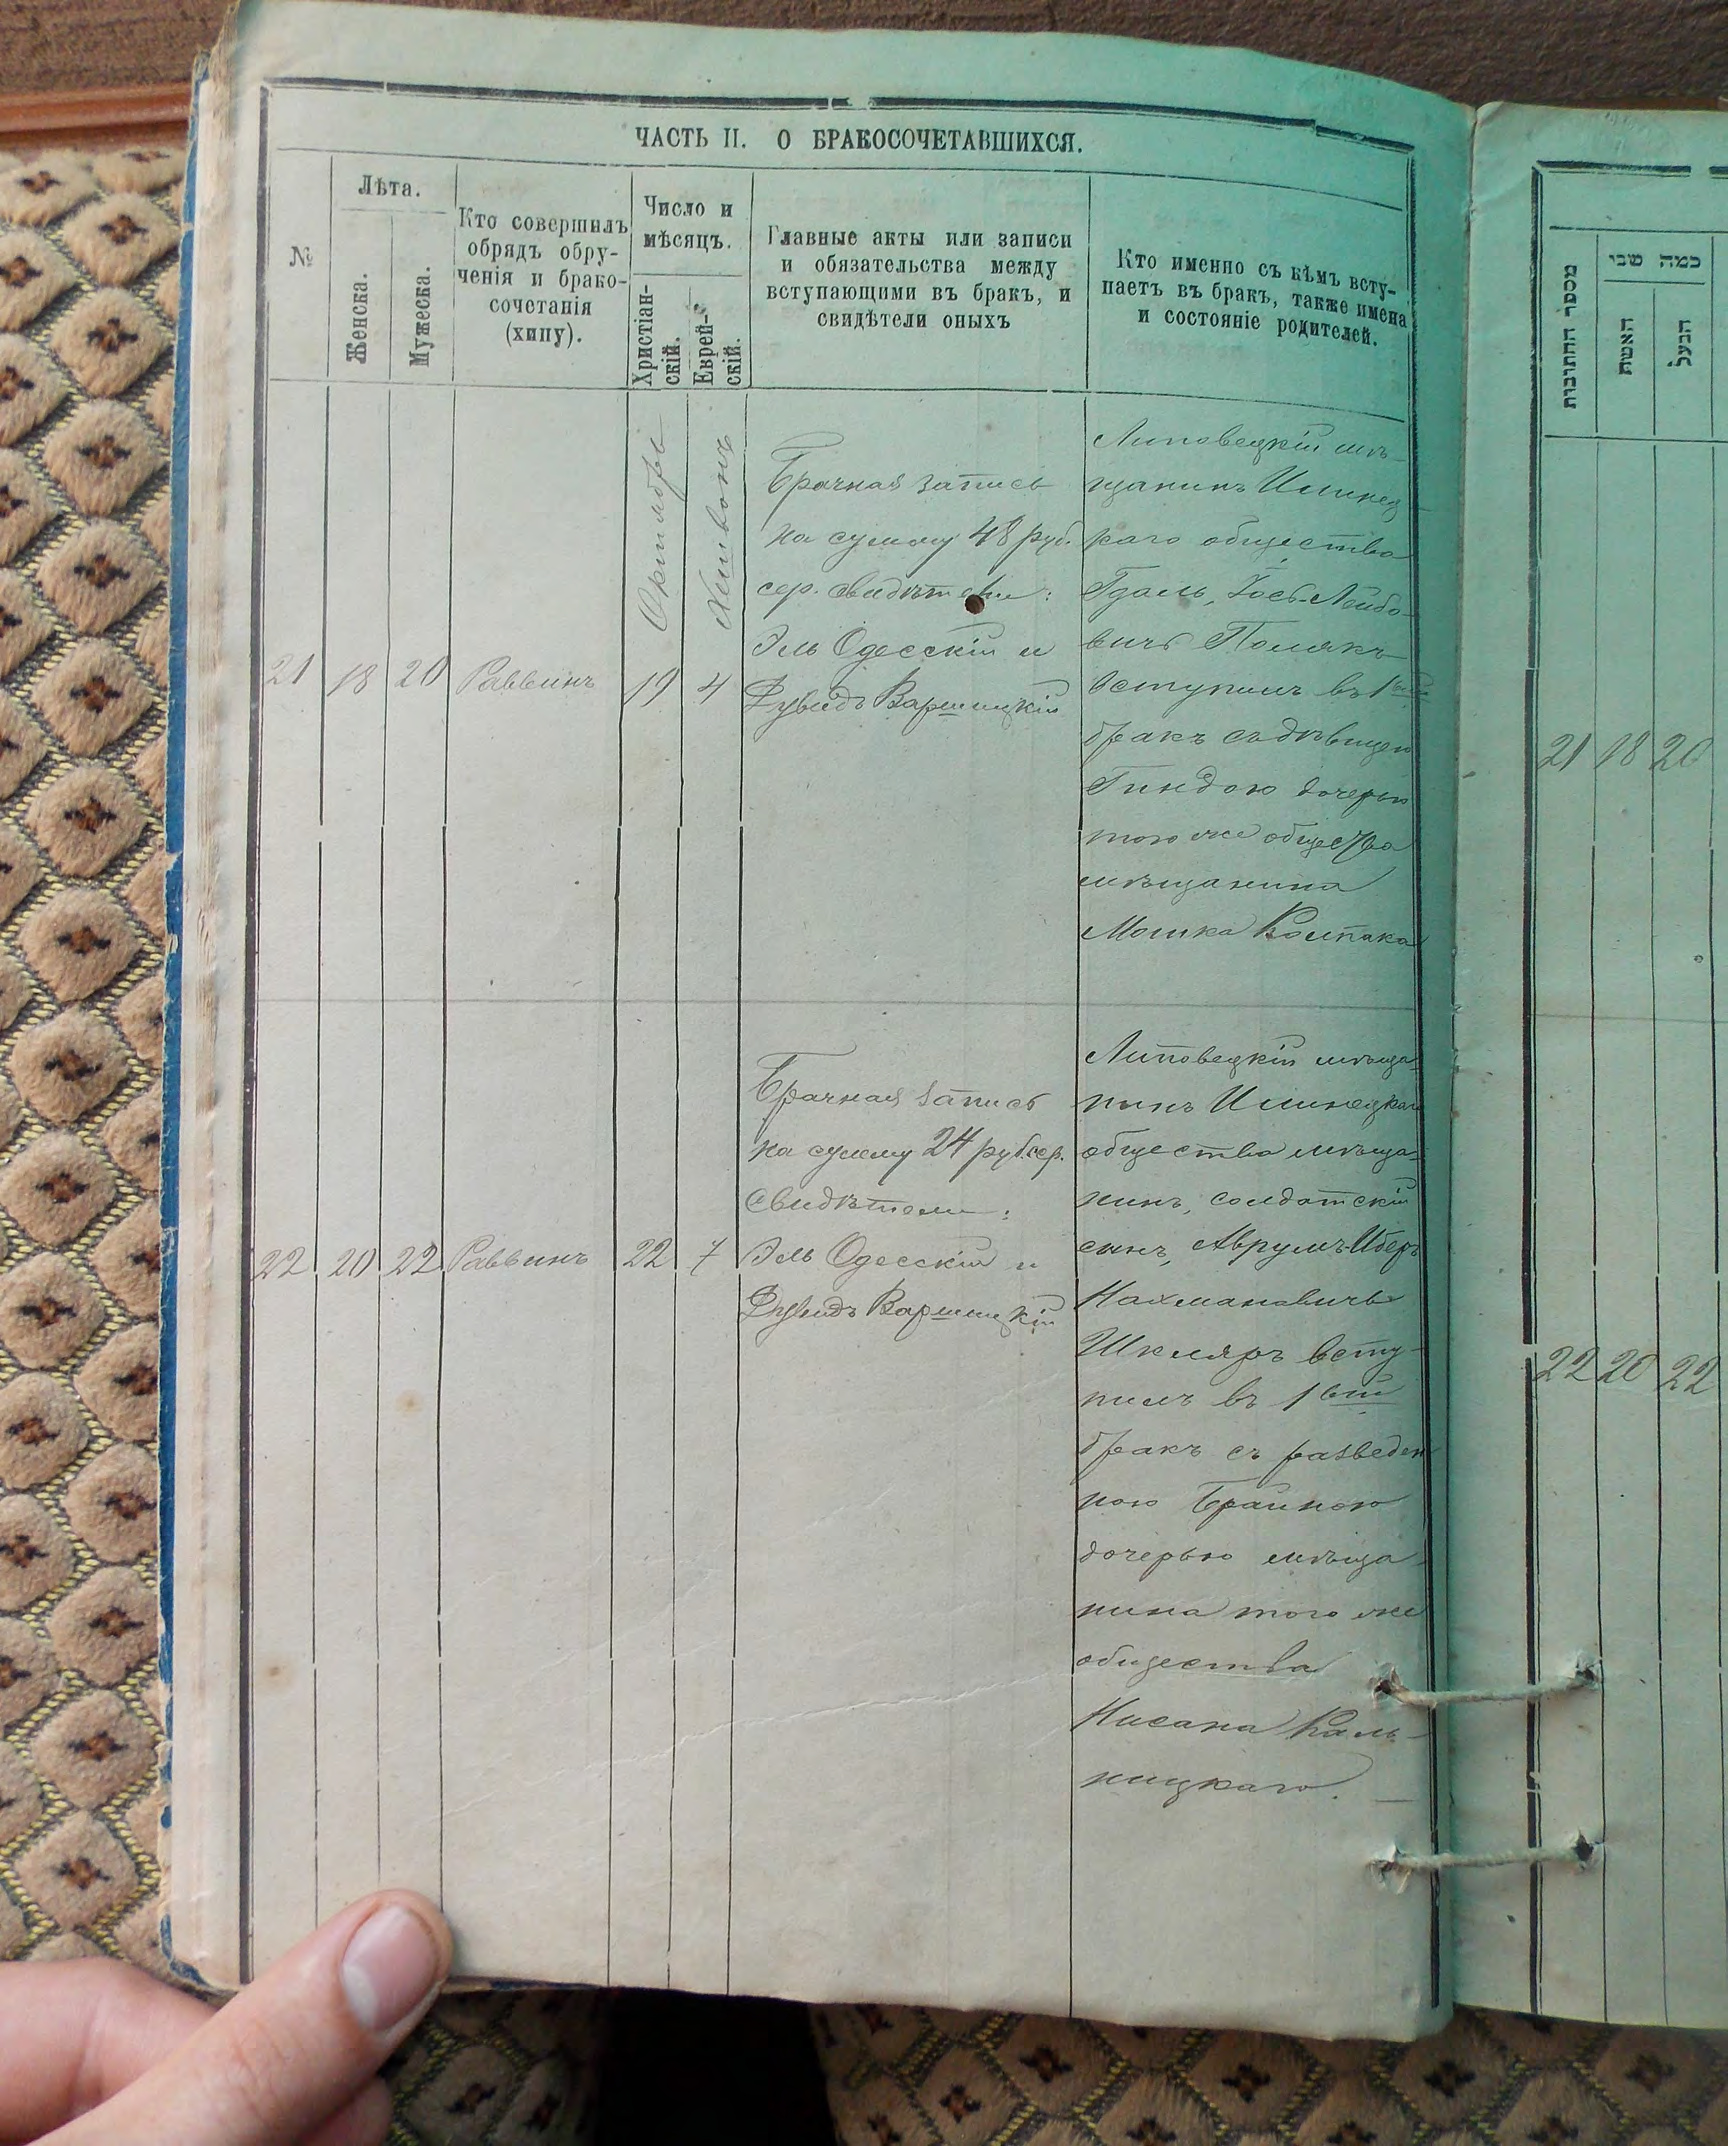 ЧАСТЬ II. О БРАКОСОЧЕТАВШИХСЯ.
№
Лѣта.
Женска.
Мужеска.
Кто совершилъ
обрядъ обру-
ченія и брако-
сочетанія
(хипу).
Число и
мѣсяцъ.
Христіан-
скій.
Еврей-
скій.
Главные акты или записи
и обязательства между
вступающими въ бракъ, и
свидѣтели оныхъ
Кто именно съ кѣмъ всту-
паетъ въ бракъ, также имена
и состояніе родителей.
21
18
20
Раввинъ
Октября
19
Хешвонъ
4
Брачная запись
на сумму 48 руб.
сер. свидѣтели:
Эль Одесскій и
Дувидъ Варшицкій
Липовецкій мѣ-
щанинъ Илинец
каго общества
Гдаль, Іось-Лейбо-
вичъ Полякъ
вступилъ въ 1вый
бракъ съ дѣвицею
Гиндою дочерью
того же общества
мѣщанина
Мошка Колпака
22
20
22
Раввинъ
22
7
Брачная запись
на сумму 24 руб. сер.
Свидѣтели:
Эль Одесскій и
Дувидъ Варшицкій
Липовецкій мѣща-
нинъ Илинецкаго
общества мѣща-
нинъ, солдатскій
сынъ, Аврумъ-Иберъ
Нахмановичъ
Шкляръ всту-
пилъ въ 1вый
бракъ съ разведен
ною Брайною
дочерью мѣща-
нина того же
общества
Нисана Каль-
ницкаго.
מספר החתונות
כמה שני
האשה
הבעל
21
18
20
22
20
22